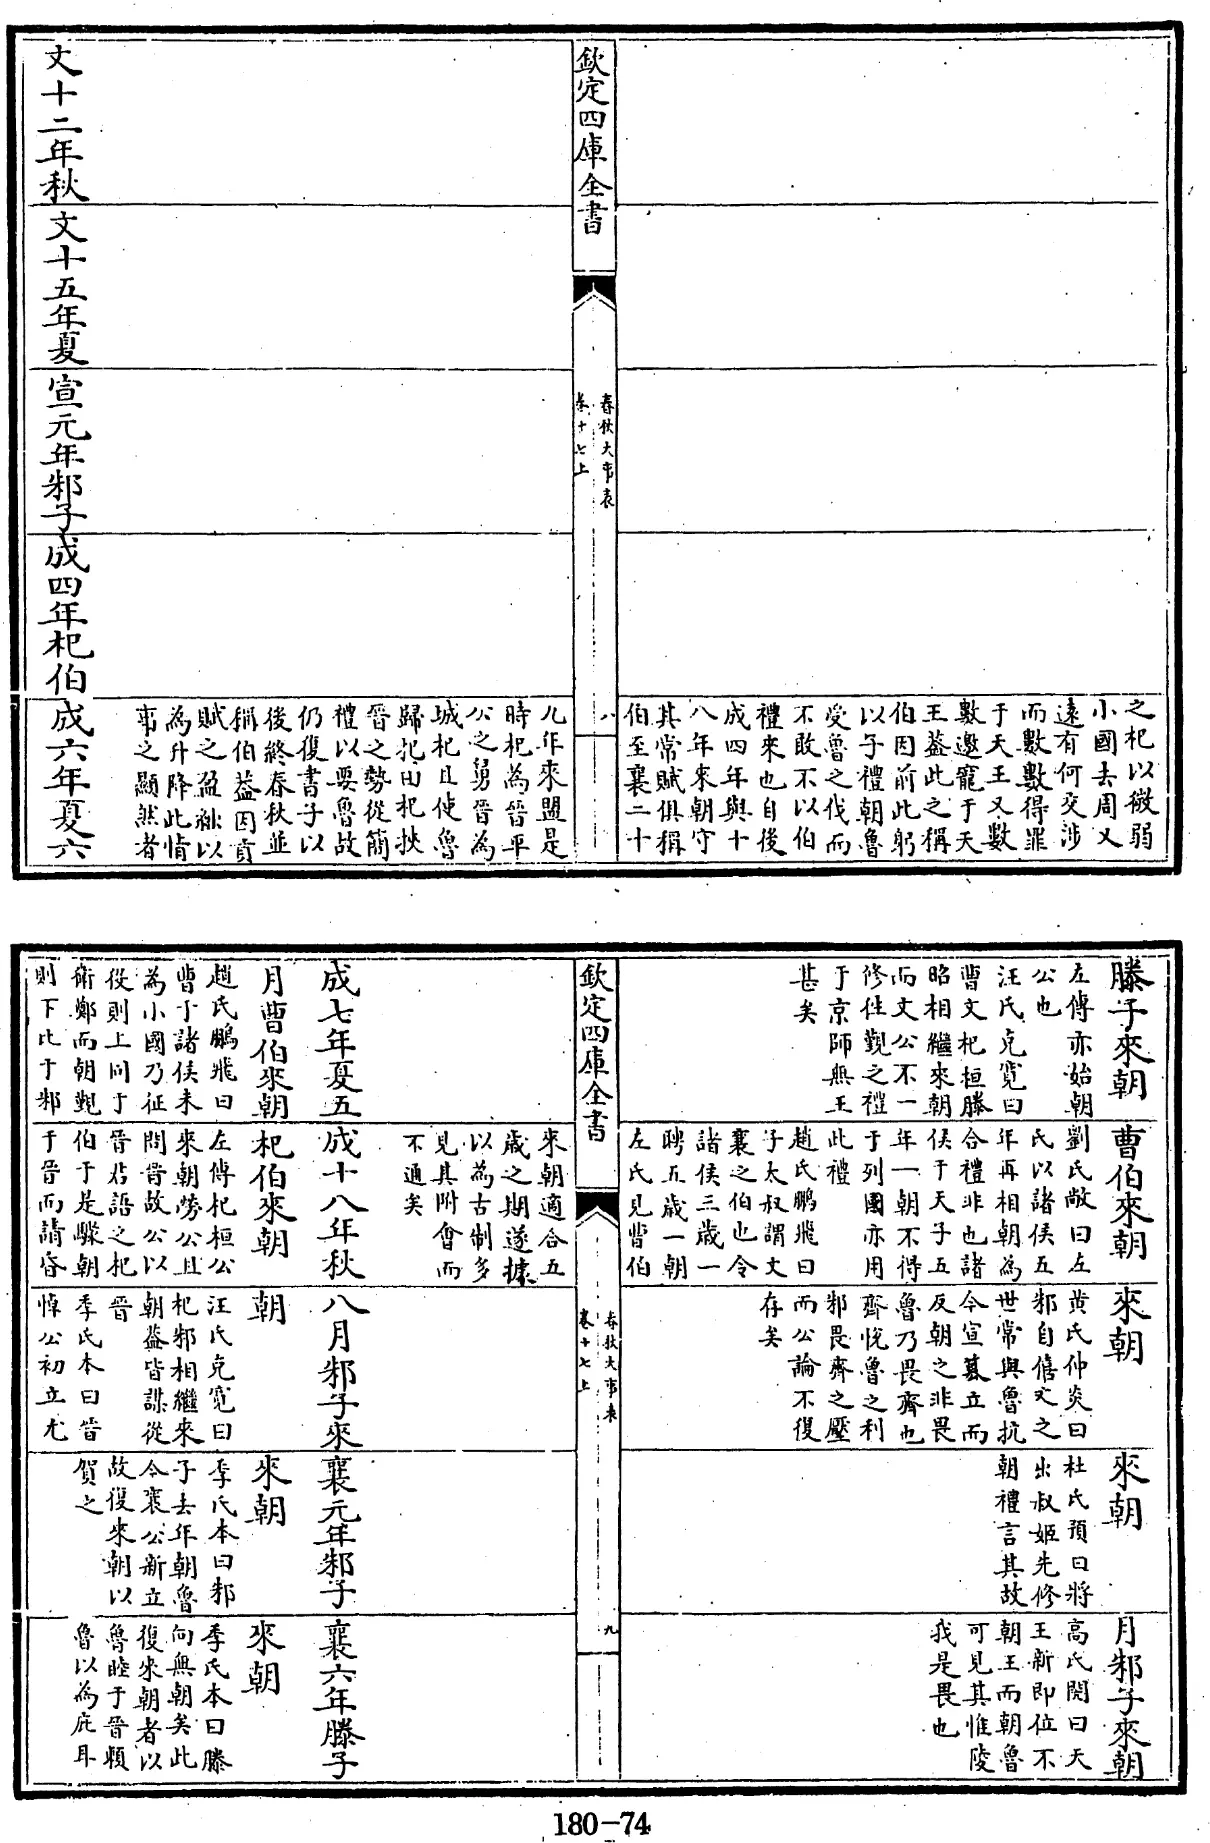 之杞以微弱
小國去周又
遠有何交涉
而數數得罪
于天王又數
數邀寵于天
王葢此之稱
伯因前此躬
以子禮朝魯
受魯之伐而
不敢不以伯
禮來也自後
成四年與十
八年來朝守
其常賦俱稱
伯至襄二十
欽定四庫全書
春秋大事表
卷十七上
八
九年來盟是
時杞為晉平
公之舅晉為
城杞且使魯
歸杞田杞挾
晉之勢從簡
禮以要魯故
仍復書子以
後終春秋並
稱伯葢因貢
賦之盈絀以
為升降此情
事之顯然者
文十二年秋
文十五年夏
宣元年邾子
成四年杞伯
成六年夏六
滕子來朝
左傳亦始朝
公也
汪氏克寛曰
曹文杞桓滕
昭相繼來朝
而文公不一
修往覲之禮
于京師無王
甚矣
曹伯來朝
劉氏敞曰左
氏以諸侯五
年再相朝為
合禮非也諸
侯于天子五
年一朝不得
于列國亦用
此禮
趙氏鵬飛曰
子太叔謂文
襄之伯也令
諸侯三歲一
聘五歲一朝
左氏見曹伯
來朝
黃氏仲炎曰
邾自僖文之
世常與魯抗
今宣簒立而
反朝之非畏
魯乃畏齊也
齊悅魯之利
邾畏齊之壓
而公論不復
存矣
來朝
杜氏預曰將
出叔姬先修
朝禮言其故
月邾子來朝
高氏閌曰天
王新即位不
朝王而朝魯
可見其惟陵
我是畏也
欽定四庫全書
春秋大事表
卷十七上
九
來朝適合五
歲之期遂據
以為古制多
見其附會而
不通矣
成七年夏五
成十八年秋
八月邾子來
襄元年邾子
襄六年滕子
月曹伯來朝
趙氏鵬飛曰
曹于諸侯未
為小國乃征
役則上同于
衛鄭而朝覲
則下比于邾
杞伯來朝
左傳杞桓公
來朝勞公且
問晉故公以
晉君語之杞
伯于是驟朝
于晉而請昏
朝
汪氏克寛曰
杞邾相繼來
朝葢皆謀從
晉
季氏本曰晉
悼公初立尤
來朝
季氏本曰邾
子去年朝魯
今襄公新立
故復來朝以
賀之
來朝
季氏本曰滕
向無朝矣此
復來朝者以
魯睦于晉賴
魯以為庇耳
180-74